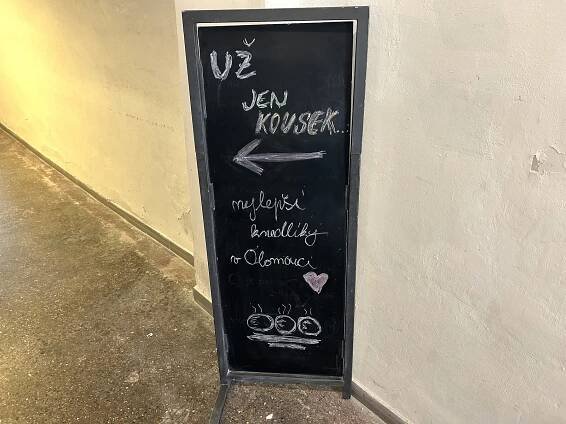 UŽ
JEN
KOUSEK...
nejlepší
knedlíky
v Olomouci